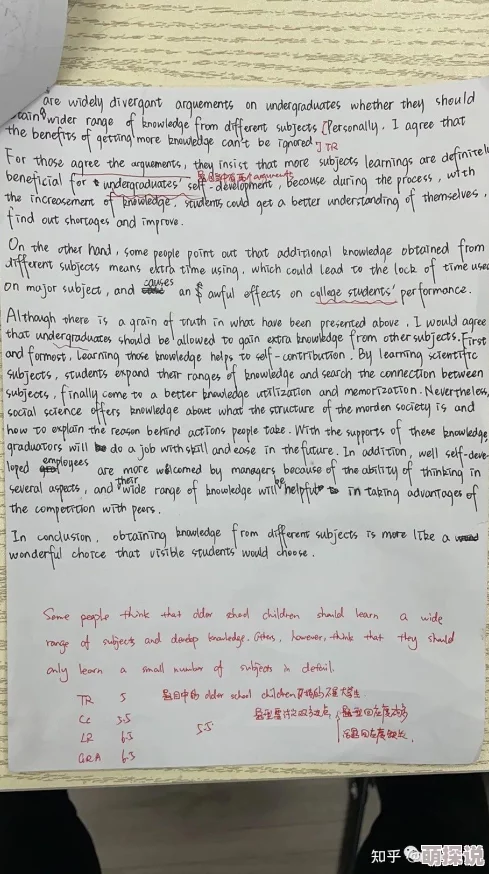 are widely divergant arguements on undergraduates whether they should
wider range of knowledge from different subjects [Personally, I agree that
the benefits of getting more knowledge can't be ignored.] TR
For those agree the arguements, they insist that more subjects learnings are definitely
beneficial for undergraduates' self-development, because during the process, with
the increasement of knowledge, students could get a better understanding of themselves,
find out shortages and improve.
On the other hand, some people point out that additional knowledge obtained from
different subjects means extra time using, which could lead to the lack of time used
on major subject, and causes an awful effects on college students' performance.
Although there is a grain of truth in what have been presented above, I would agree
that undergraduates should be allowed to gain extra knowledge from other subjects. First
and formost, learning those knowledge helps to self-contribution. By learning scientific
subjects, students expand their ranges of knowledge and search the connection between
subjects, finally come to a better knowledge utilization and memorization. Nevertheless,
social science offers knowledge about what the structure of the morden society is and
how to explain the reason behind actions people take. With the supports of these knowledge,
graduators will do a job with skill and ease in the future. In addition, well self-deve-
loped employees are more welcomed by managers because of the ability of thinking in
several aspects, and their wide range of knowledge will be helpful in taking advantages of
the competition with peers.
In conclusion, obtaining knowledge from different subjects is more like a
wonderful choice that visible students would choose.
Some people think that older school children should learn a wide
range of subjects and develop knowledge. Others, however, think that they should
only learn a small number of subjects in detail.
TR 5 题目中的 older school children 不是大学生
CC 5.5 题型要讨论双方观点,
LR 6.5 5.5
GRA 6.5
知乎 萌探说